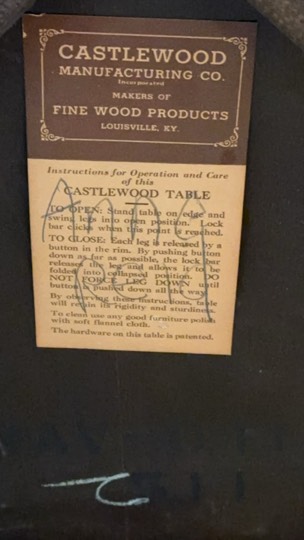 CASTLEWOOD
MANUFACTURING CO.
Incorporated
MAKERS OF
FINE WOOD PRODUCTS
LOUISVILLE, KY.
Instructions for Operation and Care
of this
CASTLEWOOD TABLE
TO OPEN: Stand table on edge and
swing legs into open position. Lock
bar clicks when this point is reached.
TO CLOSE: Each leg is released by a
button in the rim. By pushing button
down as far as possible, the lock bar
releases the leg and allows it to be
folded into collapsed position. DO
NOT FORCE LEG DOWN until
button is pushed down all the way.
By observing these instructions, table
will retain its rigidity and sturdiness.
To clean use any good furniture polish
with soft flannel cloth.
The hardware on this table is patented.